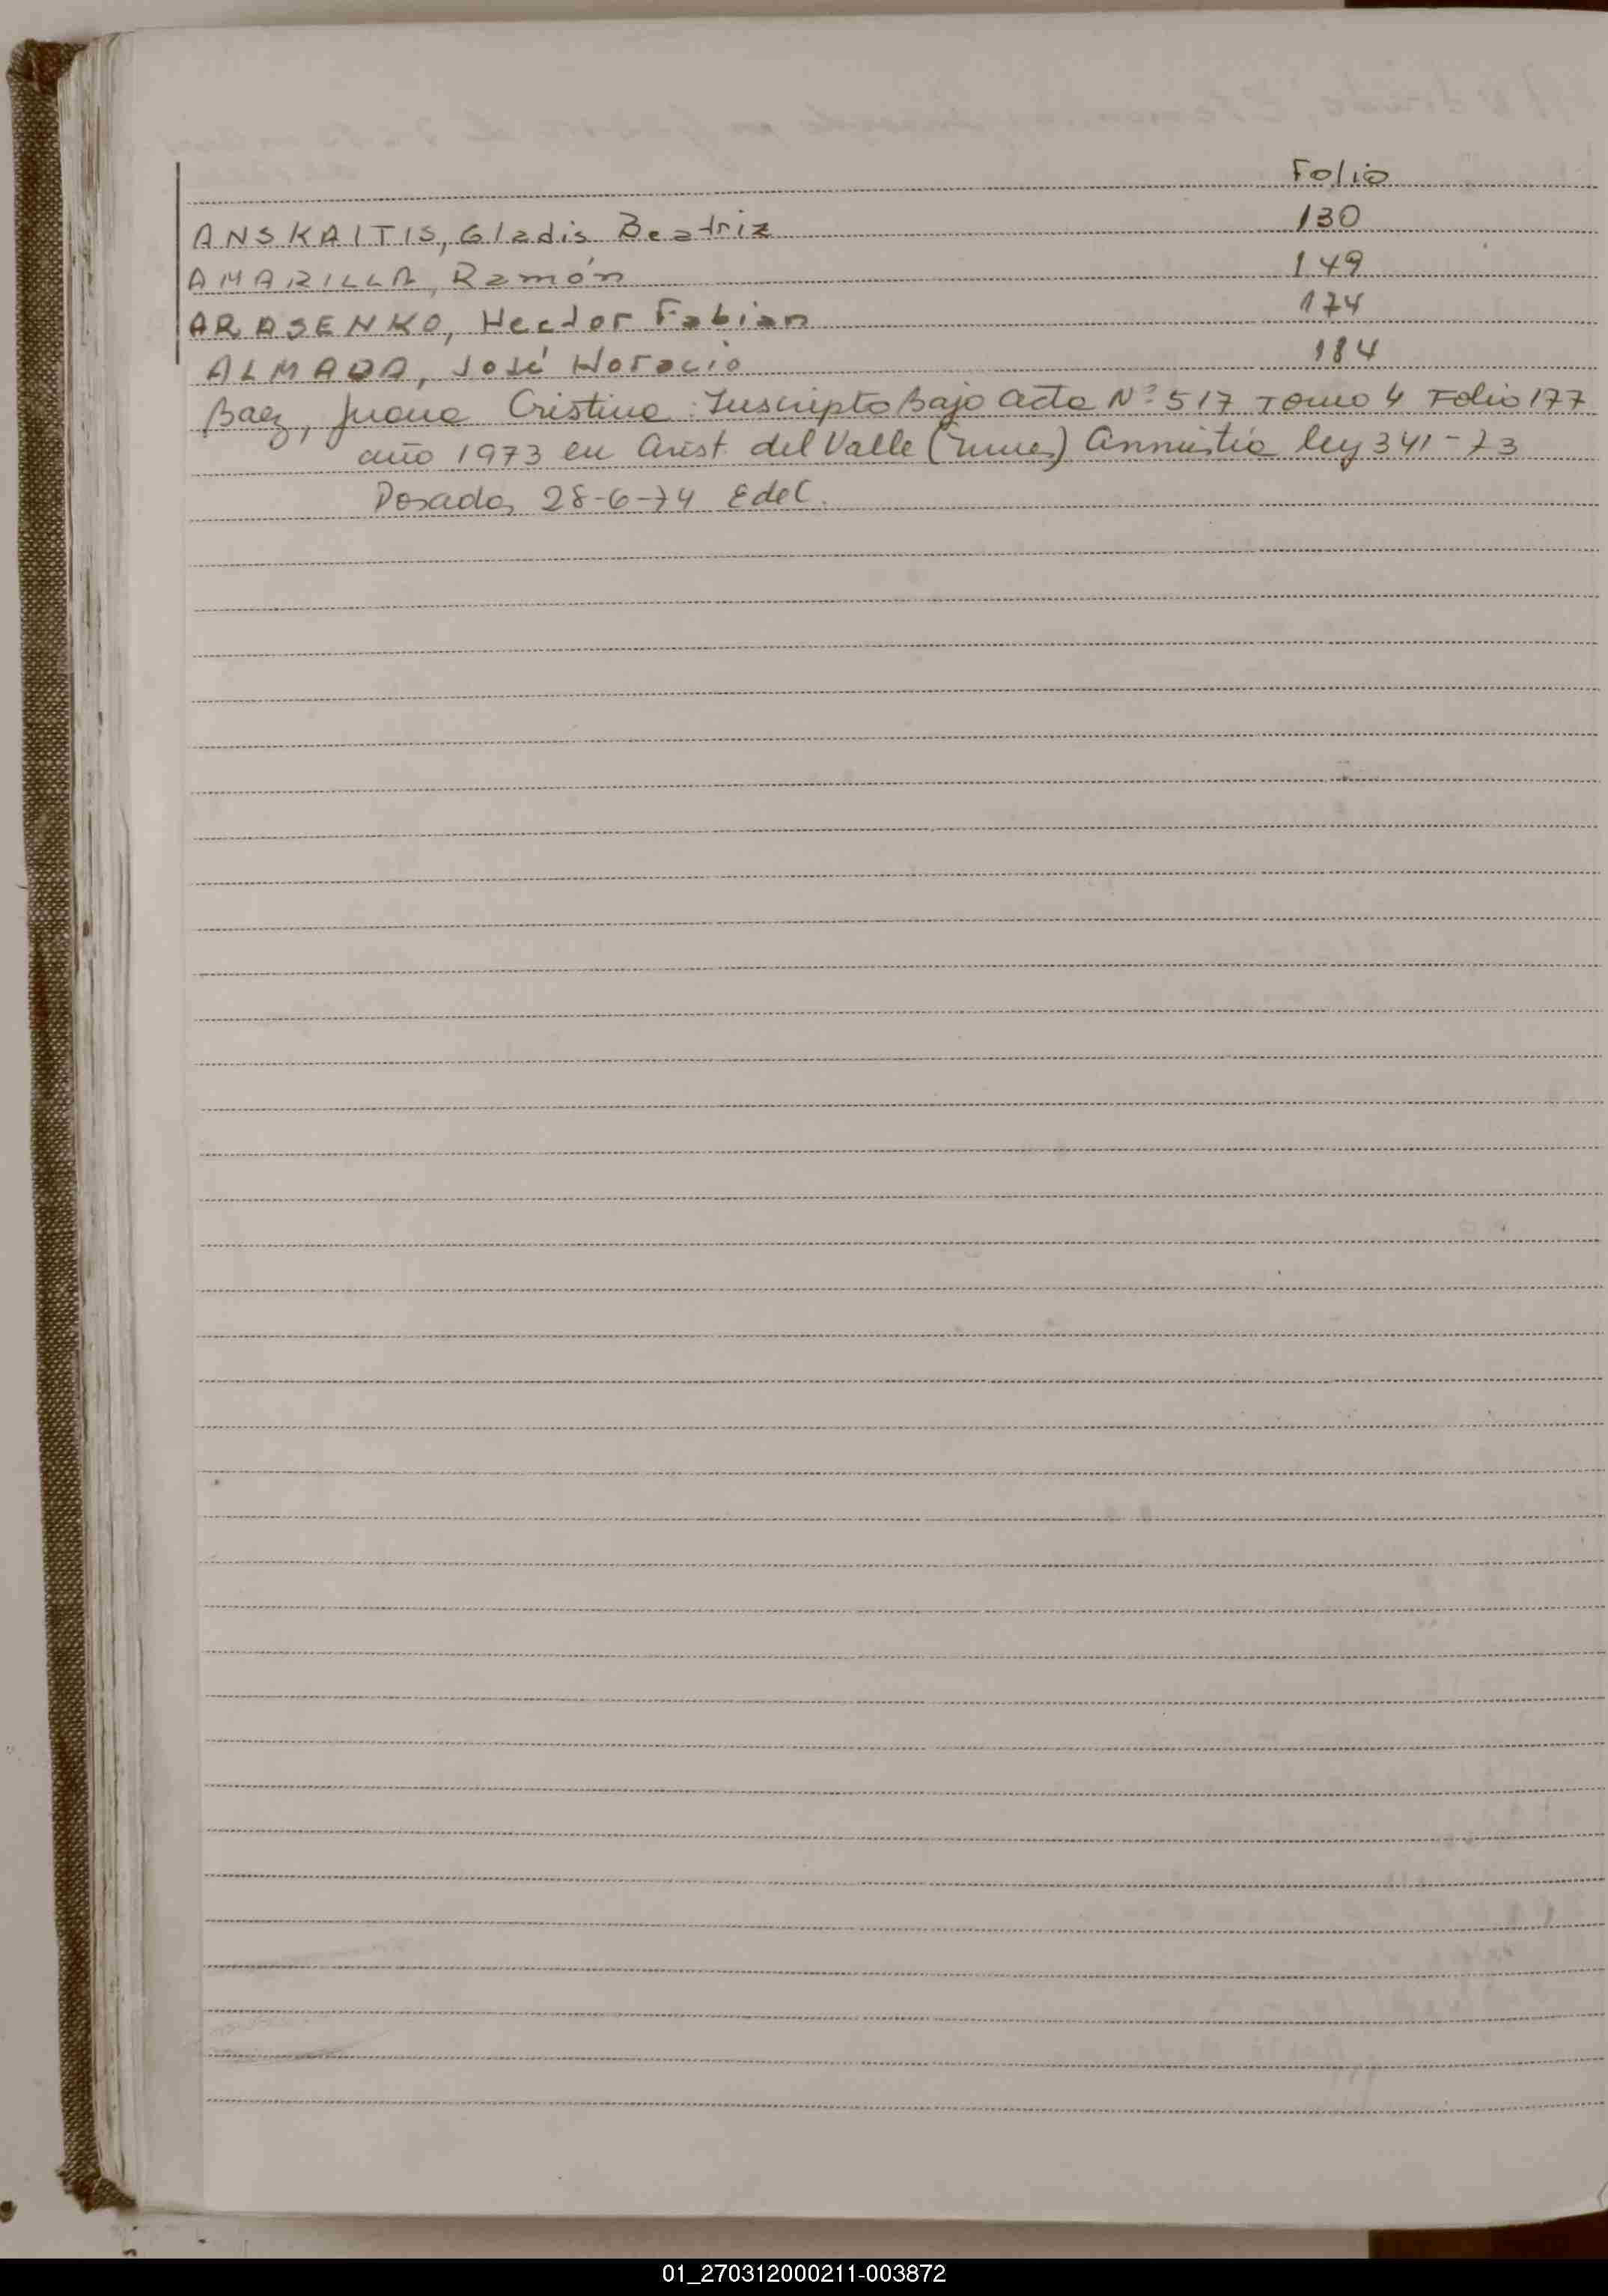 Folio
ANSKAITIS, Gladis Beatriz 130
AMARILLA, Ramón 149
ARASENKO, Hector Fabian 174
ALMADA, José Horacio 184
Baez, Juana Cristina Inscripto Bajo acta Nº 517 Tomo 4 Folio 177
año 1973 en Arist. del Valle (Mnes) Amnistia ley 341-73
Posadas 28-6-74 EdelC.
01_270312000211-003872